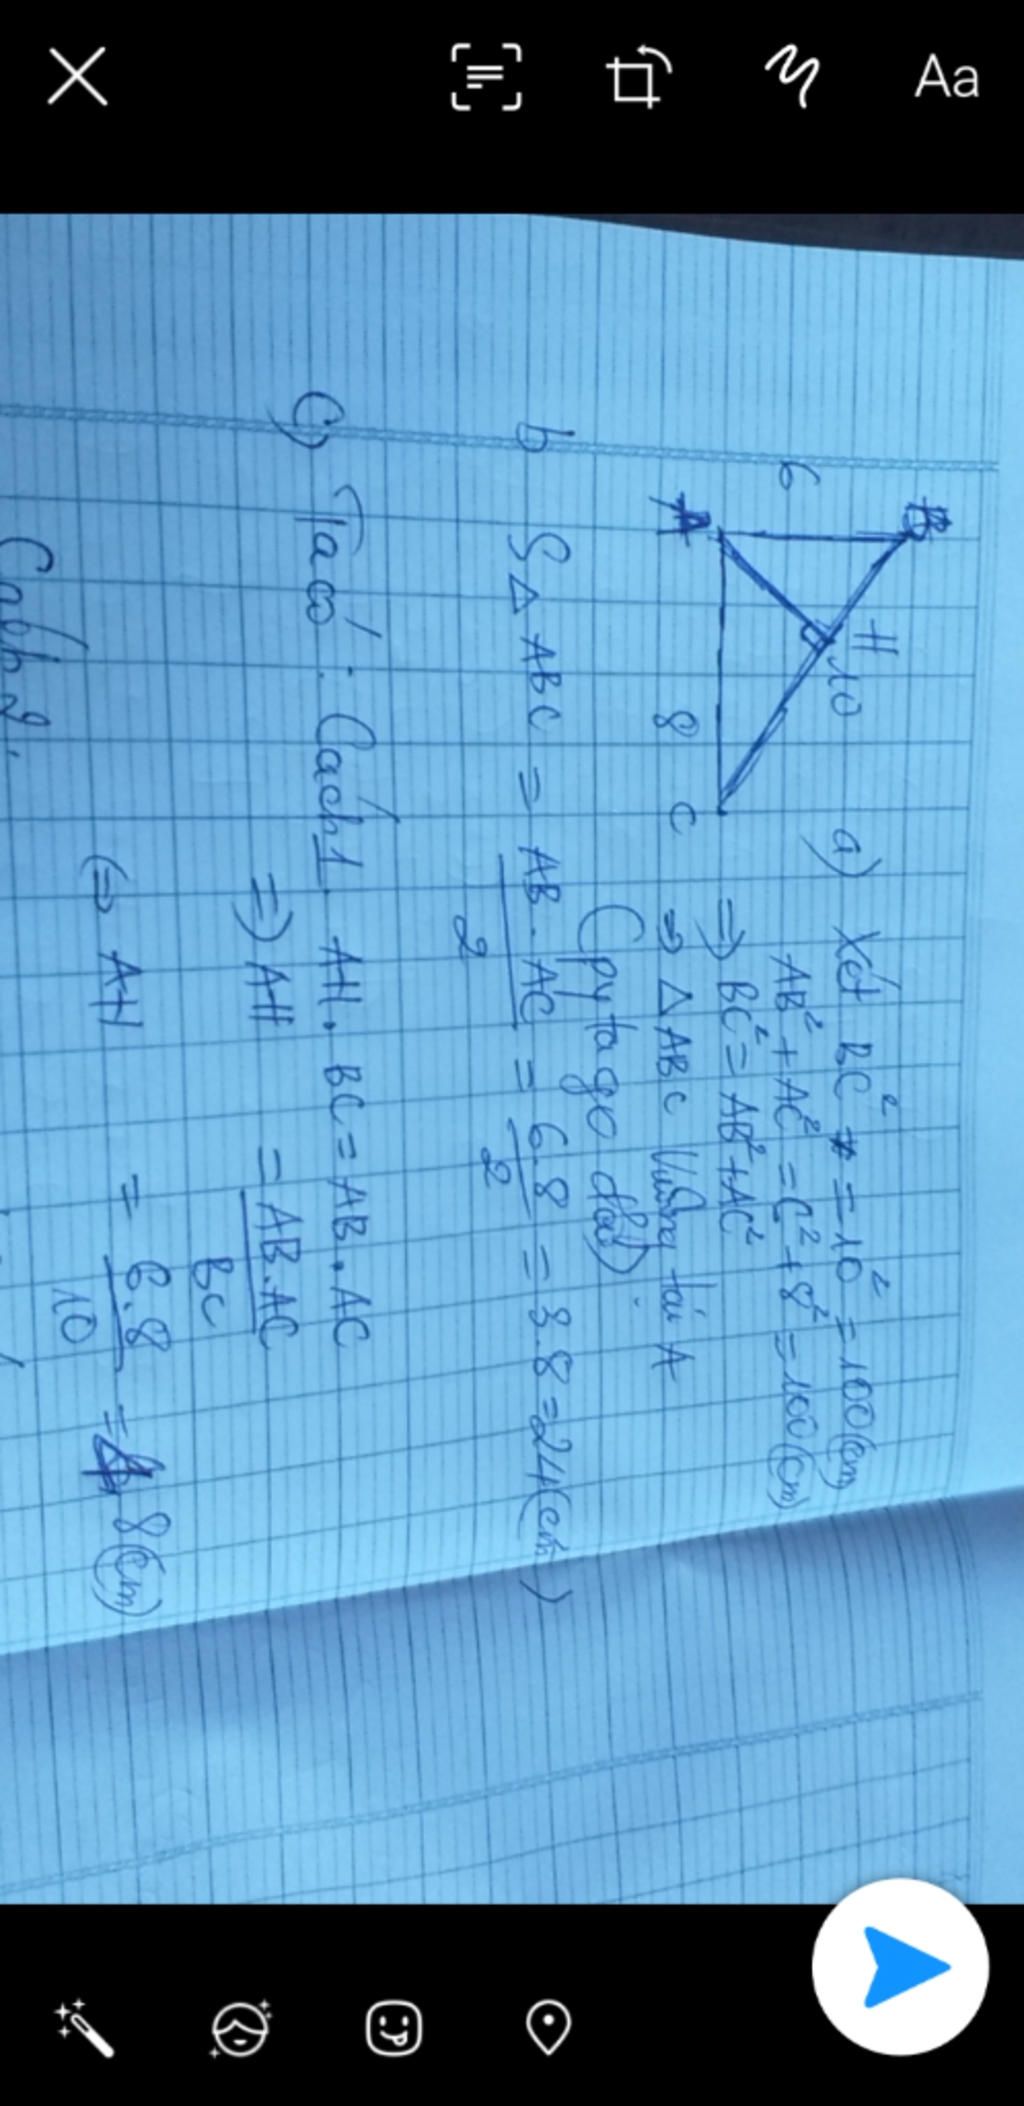 Aa
B
6
H
10
A
8
C
a) Xét BC² = 10² = 100(cm)
AB² + AC² = 6² + 8² = 100(cm)
=> BC² = AB² + AC²
=> △ABC vuông tại A
(pytago đảo).
b S△ABC = AB.AC / 2 = 6.8 / 2 = 3.8 = 24(cm)
c) Ta có: Cách 1. AH.BC = AB.AC
=> AH = AB.AC / BC
<=> AH = 6.8 / 10 = 4,8(cm)
Cách 2.